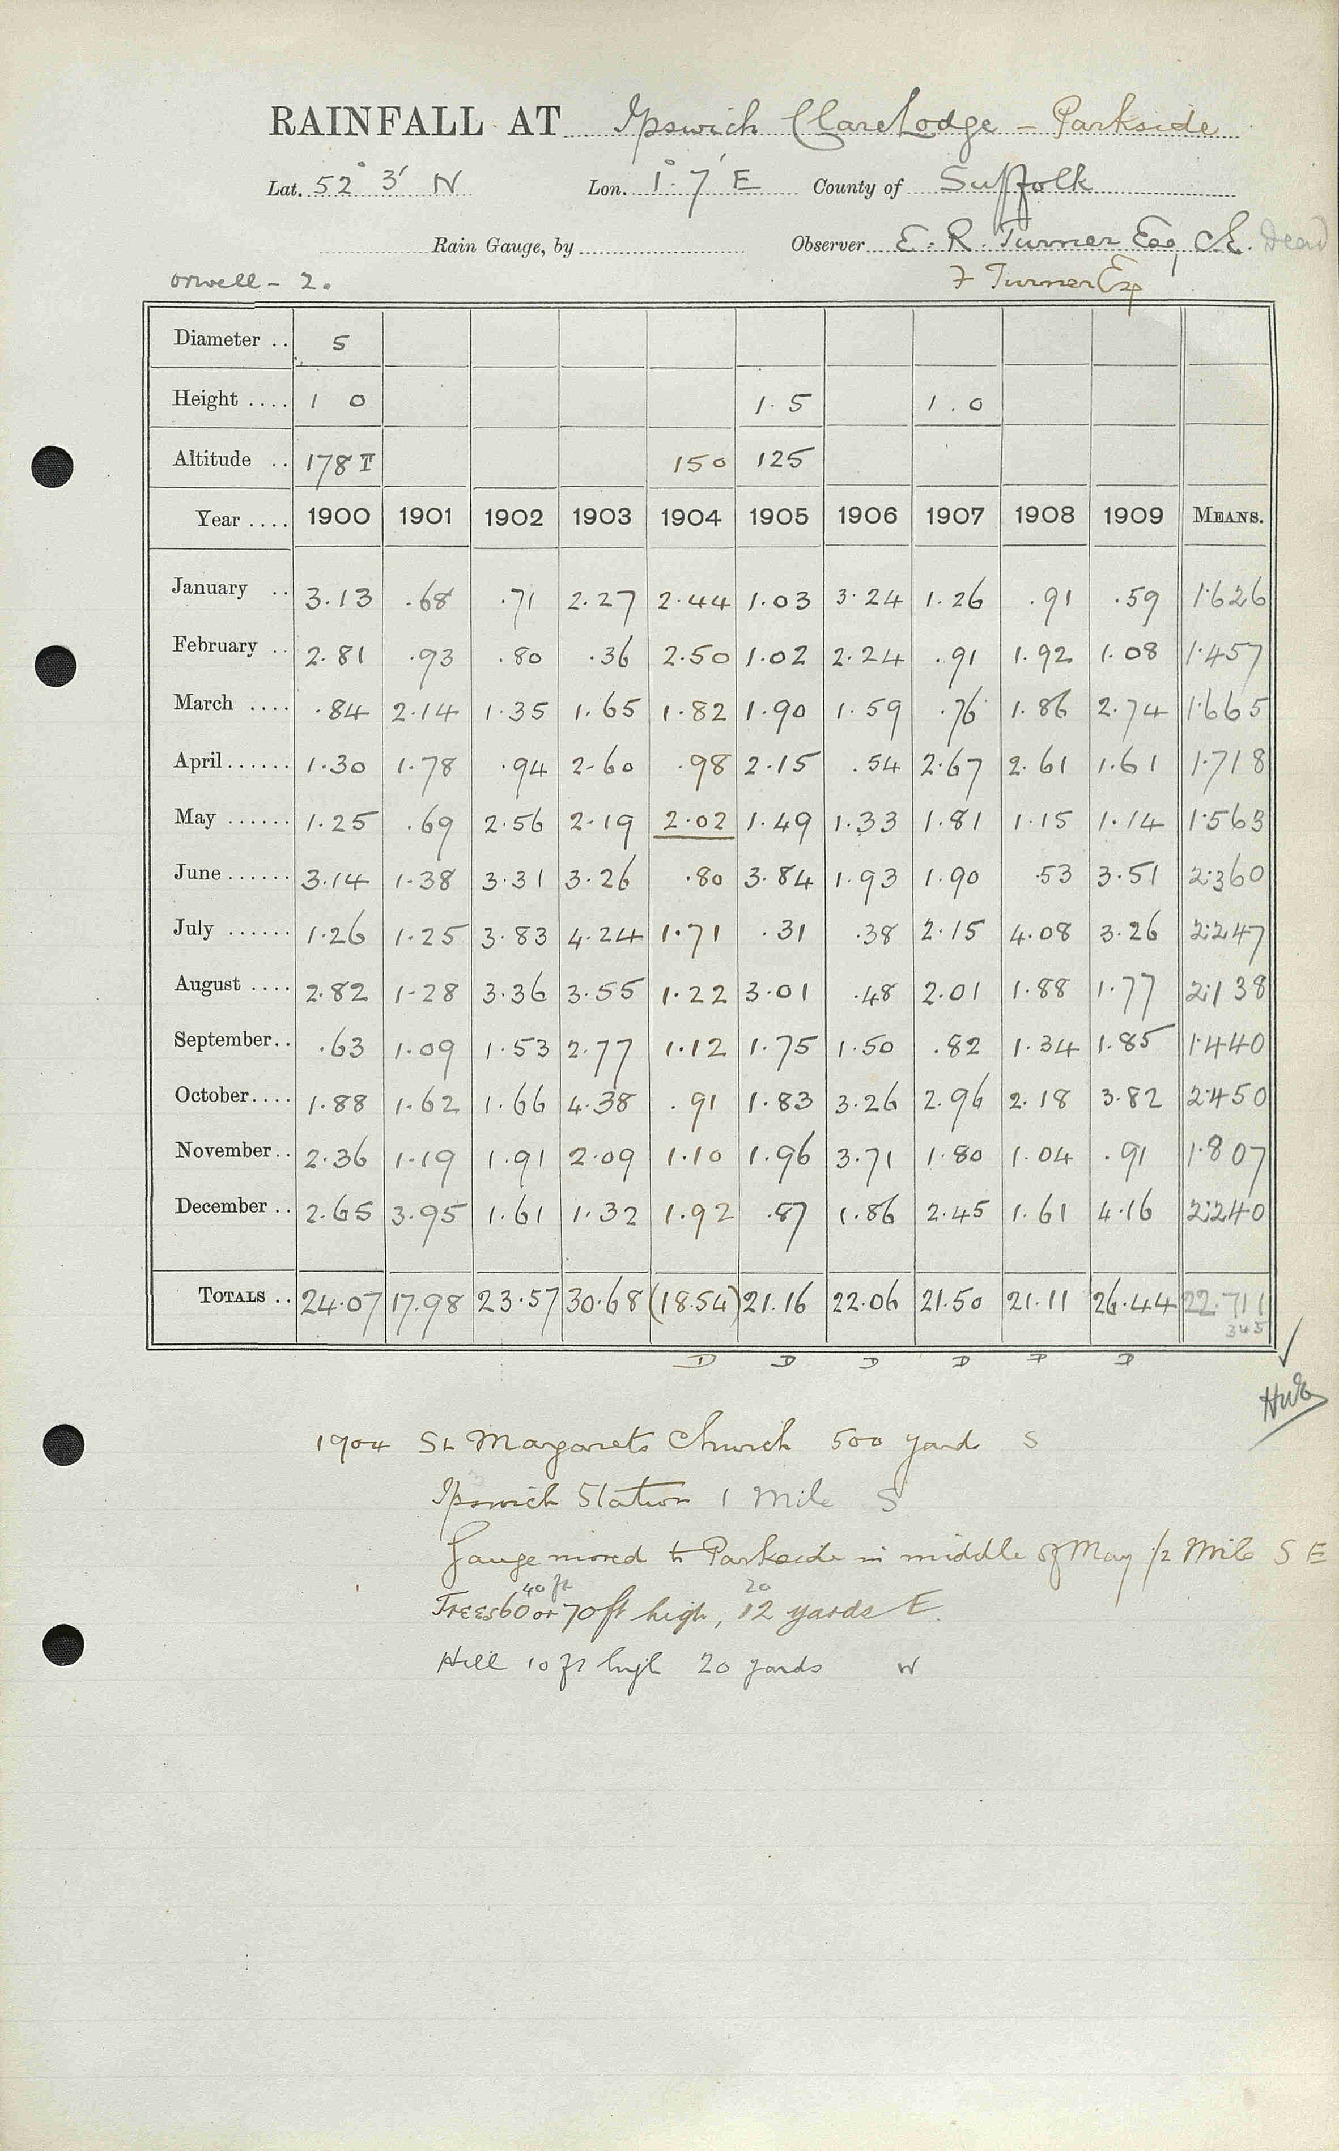 RAINFALL AT Ipswich (Clare Lodge - Parkside
Lat. 52° 3' N Lon. 1° 7' E County of Suffolk
Rain Gauge, by Observer E. R. Turner Esq C.E. Dead
Orwell - 2. F Turner Esq
Diameter .. 5
Height .... 1 0 1.5 1.0
Altitude .. 178 T 150 125
Year .... 1900 1901 1902 1903 1904 1905 1906 1907 1908 1909 MEANS.
January .. 3.13 .68 .71 2.27 2.44 1.03 3.24 1.26 .91 .59 1.626
February .. 2.81 .93 .80 .36 2.50 1.02 2.24 .91 1.92 1.08 1.457
March .... .84 2.14 1.35 1.65 1.82 1.90 1.59 .76 1.86 2.74 1.665
April...... 1.30 1.78 .94 2.60 .98 2.15 .54 2.67 2.61 1.61 1.718
May ...... 1.25 .69 2.56 2.19 2.02 1.49 1.33 1.81 1.15 1.14 1.563
June ...... 3.14 1.38 3.31 3.26 .80 3.84 1.93 1.90 .53 3.51 2.360
July ...... 1.26 1.25 3.83 4.24 1.71 .31 .38 2.15 4.08 3.26 2.247
August .... 2.82 1.28 3.36 3.55 1.22 3.01 .48 2.01 1.88 1.77 2.138
September.. .63 1.09 1.53 2.77 1.12 1.75 1.50 .82 1.34 1.85 1.440
October.... 1.88 1.62 1.66 4.38 .91 1.83 3.26 2.96 2.18 3.82 2.450
November.. 2.36 1.19 1.91 2.09 1.10 1.96 3.71 1.80 1.04 .91 1.807
December .. 2.65 3.95 1.61 1.32 1.92 .87 1.86 2.45 1.61 4.16 2.240
TOTALS .. 24.07 17.98 23.57 30.68 (18.54) 21.16 22.06 21.50 21.11 26.44 22.711
345
D D D D D D
1904 St Margarets Church 500 yards S
Ipswich Station 1 Mile S
Gauge moved to Parkside in middle of May 1/2 Mile S E
40 ft 20
Trees 60 or 70 ft high, 12 yards E.
Hill 10 ft high 20 yards W